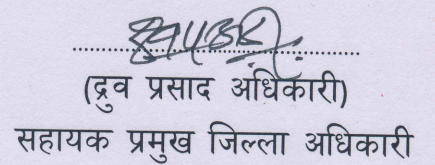 (द्रुव प्रसाद अधिकारी)
सहायक प्रमुख जिल्ला अधिकारी